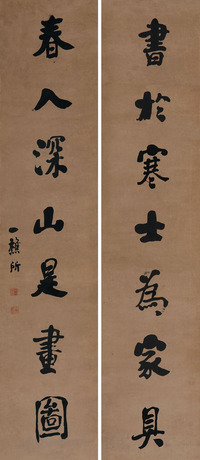 書於寒士為家具
春入深山是畫圖